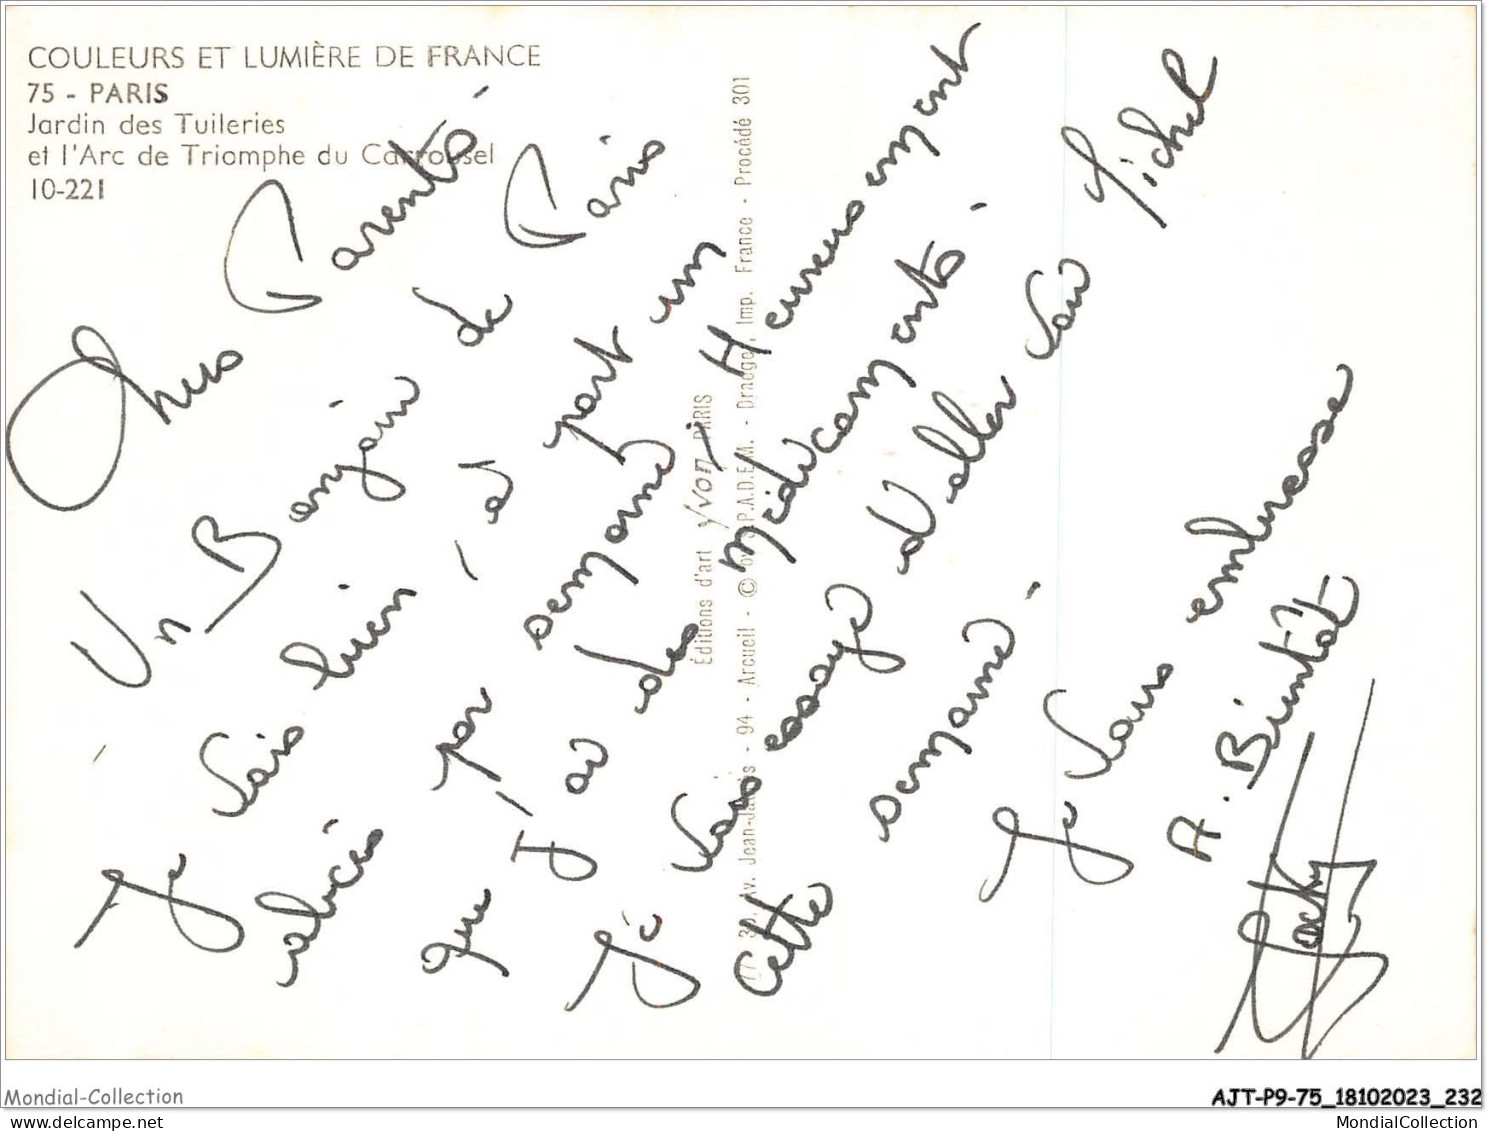 COULEURS ET LUMIÈRE DE FRANCE
75 - PARIS
Jardin des Tuileries
et l'Arc de Triomphe du Carrousel
10-221
Chers Parents.
Un Bonjour de Paris
Je vais bien, à part un
par semaine, Heureusement
que J'ai des médicaments.
Je vais essayé d'aller voir Michel
Cette semaine.
Je vous embrasse
A. Bientôt
Jacky
Éditions d'art Yvon, PARIS
Av. Jean-Jaurès - 94 - Arcueil - © by S.P.A.D.E.M. - Draeger, Imp. France - Procédé 301
Mondial-Collection
AJT-P9-75_18102023_232
MondialCollection